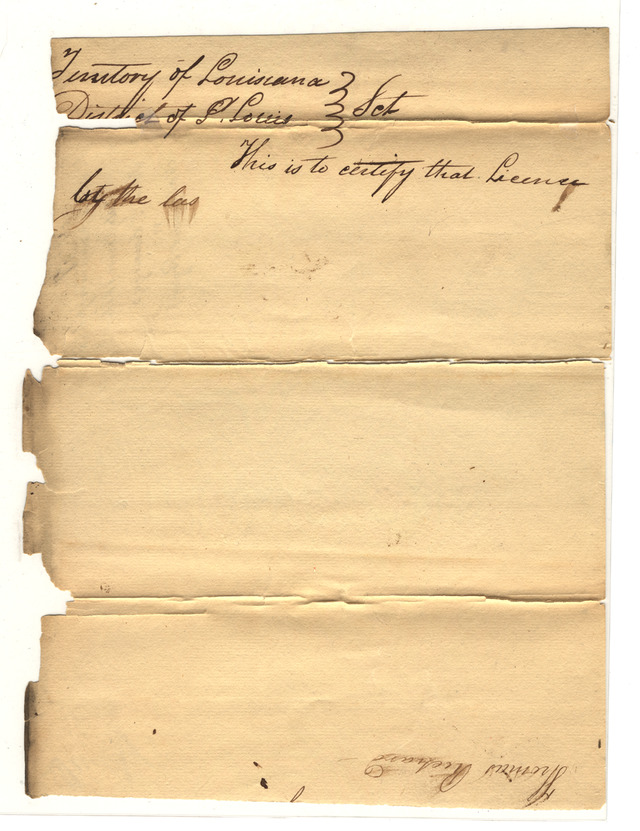 Territory of Louisiana
District of St. Louis } Sct
This is to certify that License
by the las
Thomas